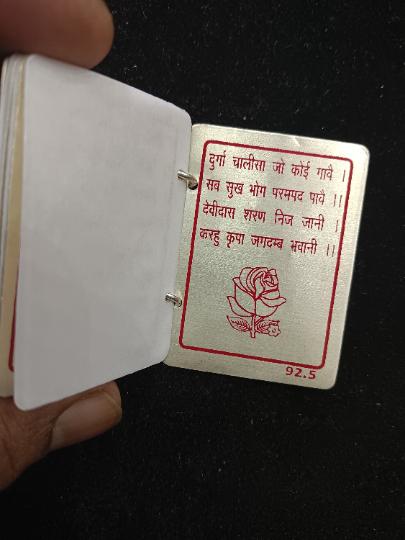 दुर्गा चालीसा जो कोई गावै ।
सब सुख भोग परमपद पावै ।।
देवीदास शरण निज जानी ।
करहु कृपा जगदम्ब भवानी ।।
92.5